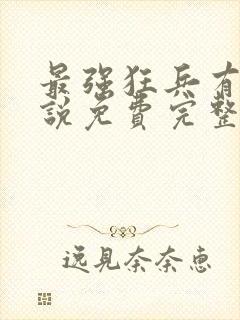 最强狂兵有
說免費完整
逸見奈奈恵